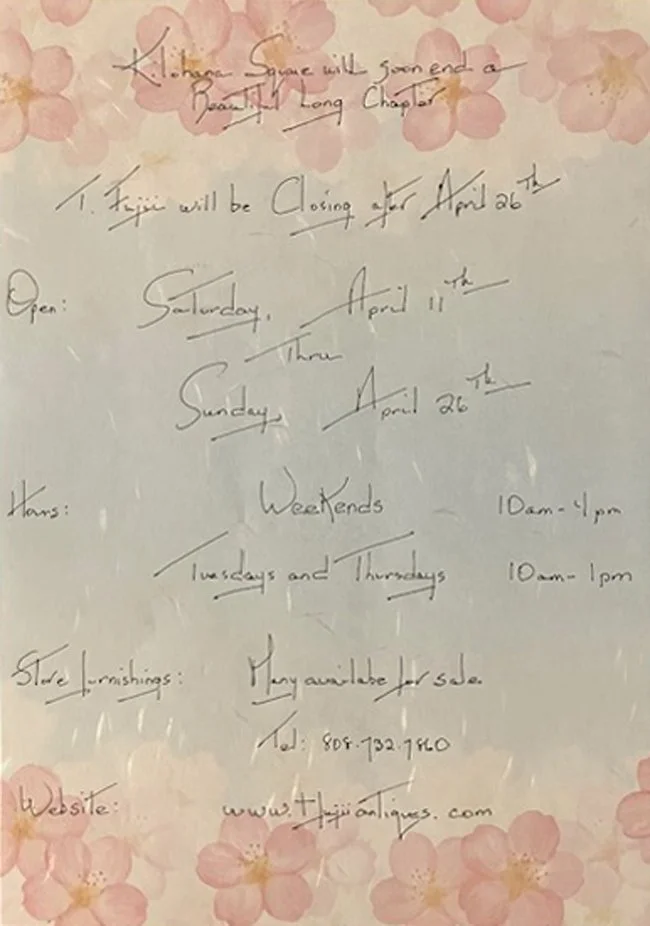 Kilohana Square will soon end a
Beautiful Long Chapter
T. Fujii will be Closing after April 26th
Open: Saturday, April 11th
Thru
Sunday, April 26th
Hours: Weekends 10am - 4pm
Tuesdays and Thursdays 10am - 1pm
Store furnishings: Many availabe for sale.
Tel: 808.732.7860
Website: www.tfujiiantiques.com